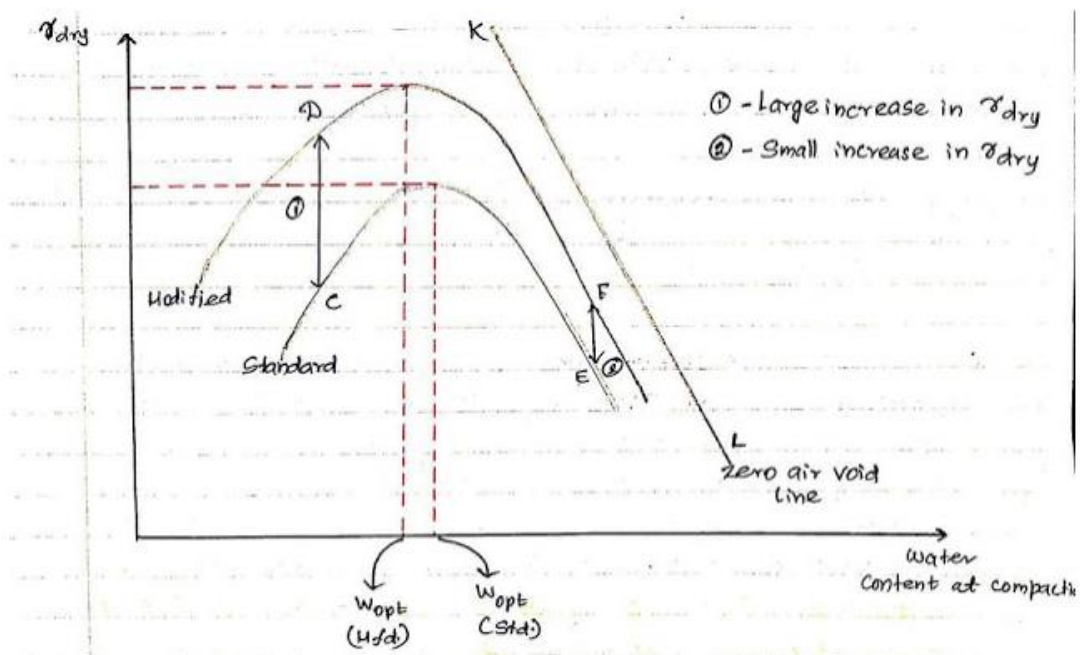 γdry
K
① - Large increase in γdry
② - Small increase in γdry
D
①
C
Modified
Standard
F
E
②
L
Zero air void
line
Water
Content at compacti
Wopt
(Mfd.)
Wopt
(Std.)